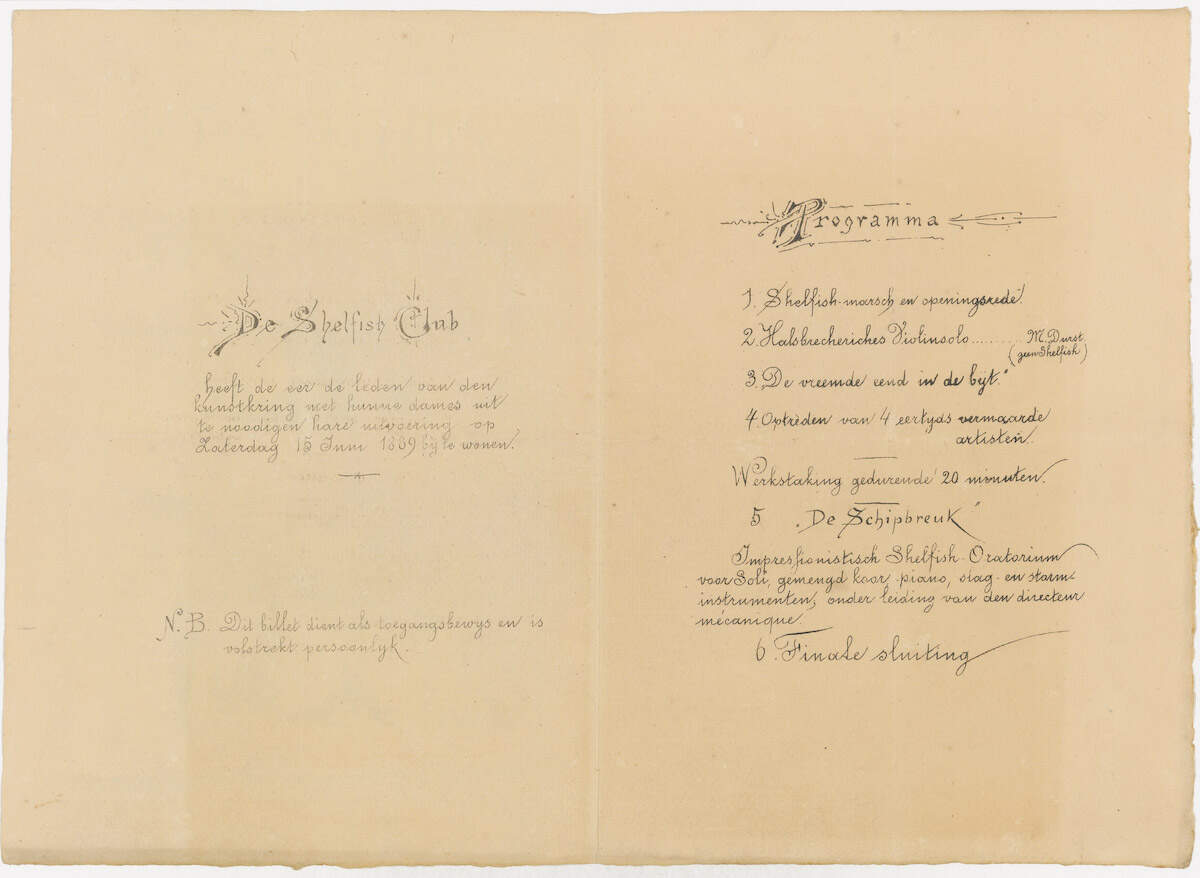 De Shelfish Club
heeft de eer de leden van den
kunstkring met hunne dames uit
te noodigen hare uitvoering op
Zaterdag 15 Juni 1889 bij te wonen.
N.B. Dit billet dient als toegangsbewys en is
volstrekt persoonlijk.
Programma
1. Shelfish-marsch en openingsrede.
2. Halsbrecheriches Violinsolo.......... M. Durst.
(geen Shelfish)
3. De vreemde eend in de bijt."
4. Optreden van 4 eertyds vermaarde
artisten.
Werkstaking gedurende 20 minuten.
5 „De Schipbreuk"
Impressionistisch Shelfish-Oratorium
voor Soli, gemengd koor-piano, slag-en storm-
instrumenten, onder leiding van den directeur
mécanique.
6. Finale sluiting